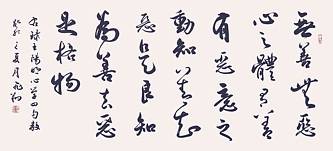 無善無惡
心之體有善
有惡意之
動知善知
惡是良知
為善去惡
是格物
右録王陽明心學四句教
癸卯之夏月